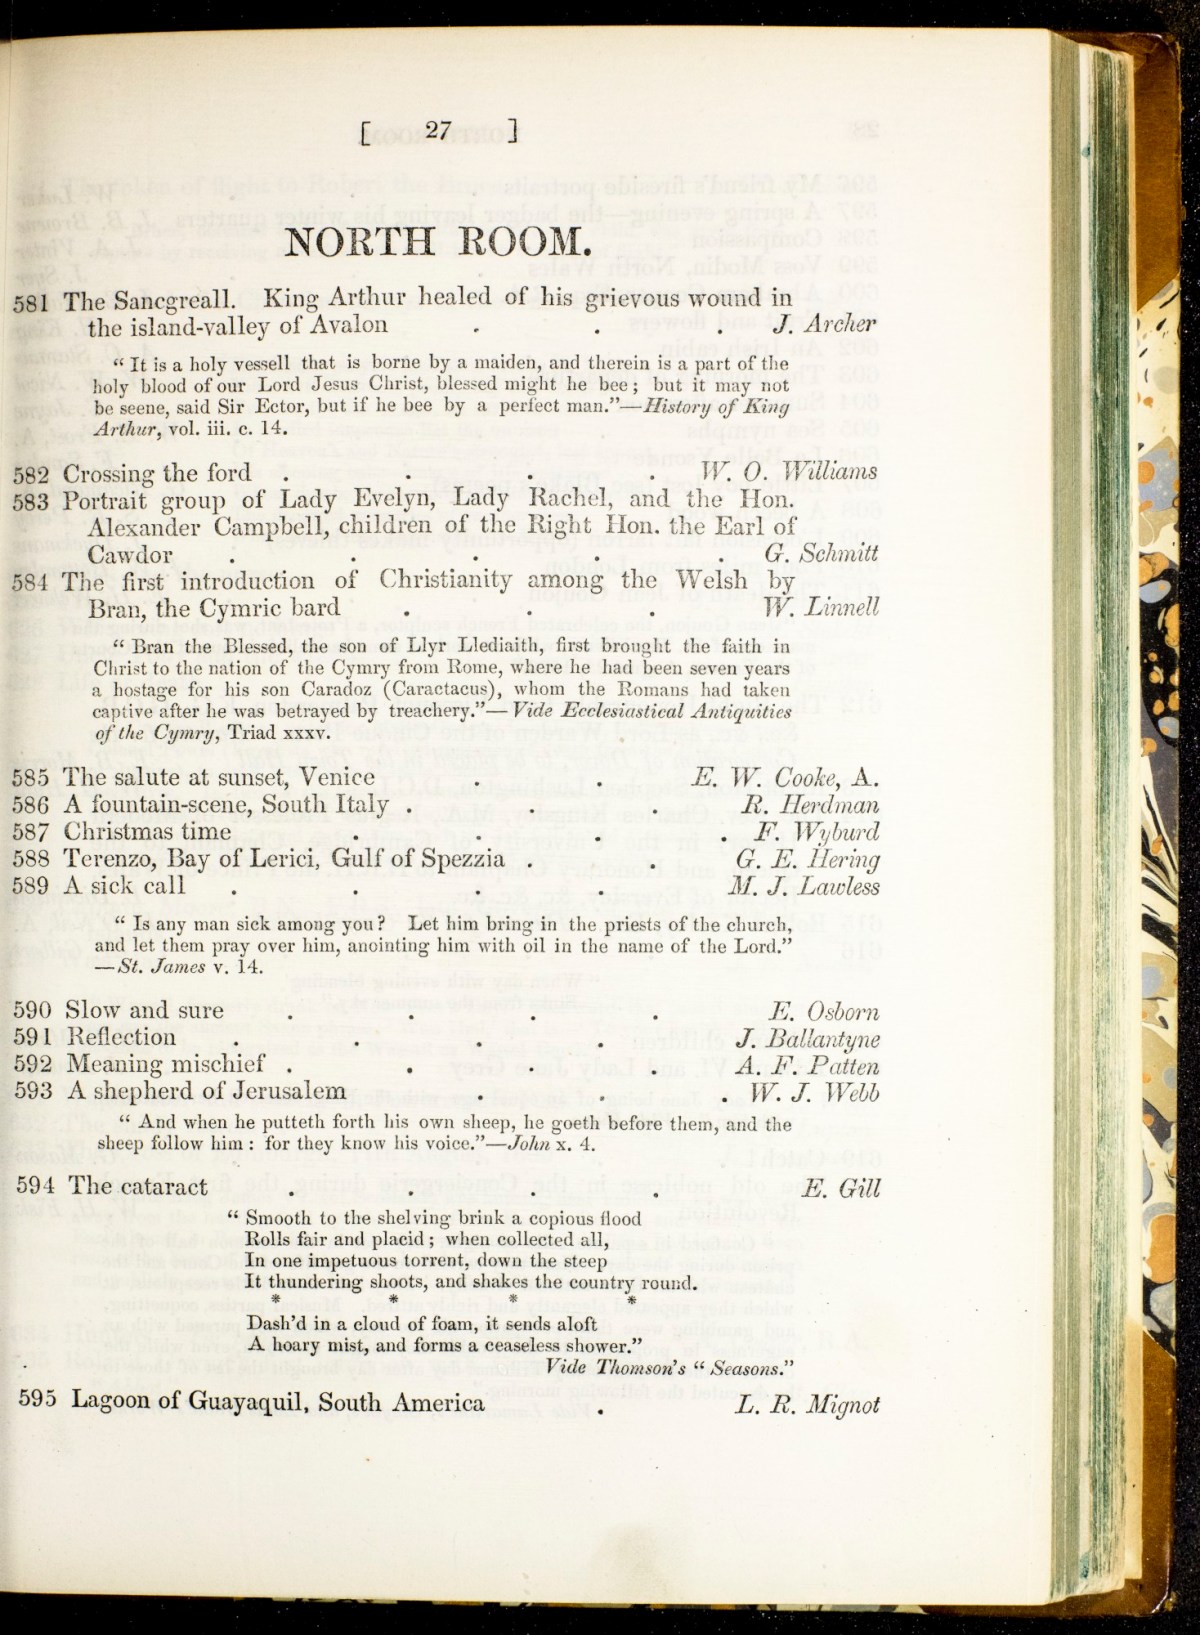 [ 27 ]
NORTH ROOM.
581 The Sancgreall. King Arthur healed of his grievous wound in
the island-valley of Avalon . . . J. Archer
“ It is a holy vessell that is borne by a maiden, and therein is a part of the
holy blood of our Lord Jesus Christ, blessed might he bee ; but it may not
be seene, said Sir Ector, but if he bee by a perfect man.”—History of King
Arthur, vol. iii. c. 14.
582 Crossing the ford . . . . W. O. Williams
583 Portrait group of Lady Evelyn, Lady Rachel, and the Hon.
Alexander Campbell, children of the Right Hon. the Earl of
Cawdor . . . . . G. Schmitt
584 The first introduction of Christianity among the Welsh by
Bran, the Cymric bard . . . W. Linnell
“ Bran the Blessed, the son of Llyr Llediaith, first brought the faith in
Christ to the nation of the Cymry from Rome, where he had been seven years
a hostage for his son Caradoz (Caractacus), whom the Romans had taken
captive after he was betrayed by treachery.”—Vide Ecclesiastical Antiquities
of the Cymry, Triad xxxv.
585 The salute at sunset, Venice . . E. W. Cooke, A.
586 A fountain-scene, South Italy . . . R. Herdman
587 Christmas time . . . . F. Wyburd
588 Terenzo, Bay of Lerici, Gulf of Spezzia . . G. E. Hering
589 A sick call . . . . M. J. Lawless
“ Is any man sick among you ? Let him bring in the priests of the church,
and let them pray over him, anointing him with oil in the name of the Lord.”
—St. James v. 14.
590 Slow and sure . . . . E. Osborn
591 Reflection . . . . J. Ballantyne
592 Meaning mischief . . . . A. F. Patten
593 A shepherd of Jerusalem . . . W. J. Webb
“ And when he putteth forth his own sheep, he goeth before them, and the
sheep follow him : for they know his voice.”—John x. 4.
594 The cataract . . . . E. Gill
“ Smooth to the shelving brink a copious flood
Rolls fair and placid ; when collected all,
In one impetuous torrent, down the steep
It thundering shoots, and shakes the country round.
* * * *
Dash’d in a cloud of foam, it sends aloft
A hoary mist, and forms a ceaseless shower.”
Vide Thomson’s “ Seasons.”
595 Lagoon of Guayaquil, South America . L. R. Mignot